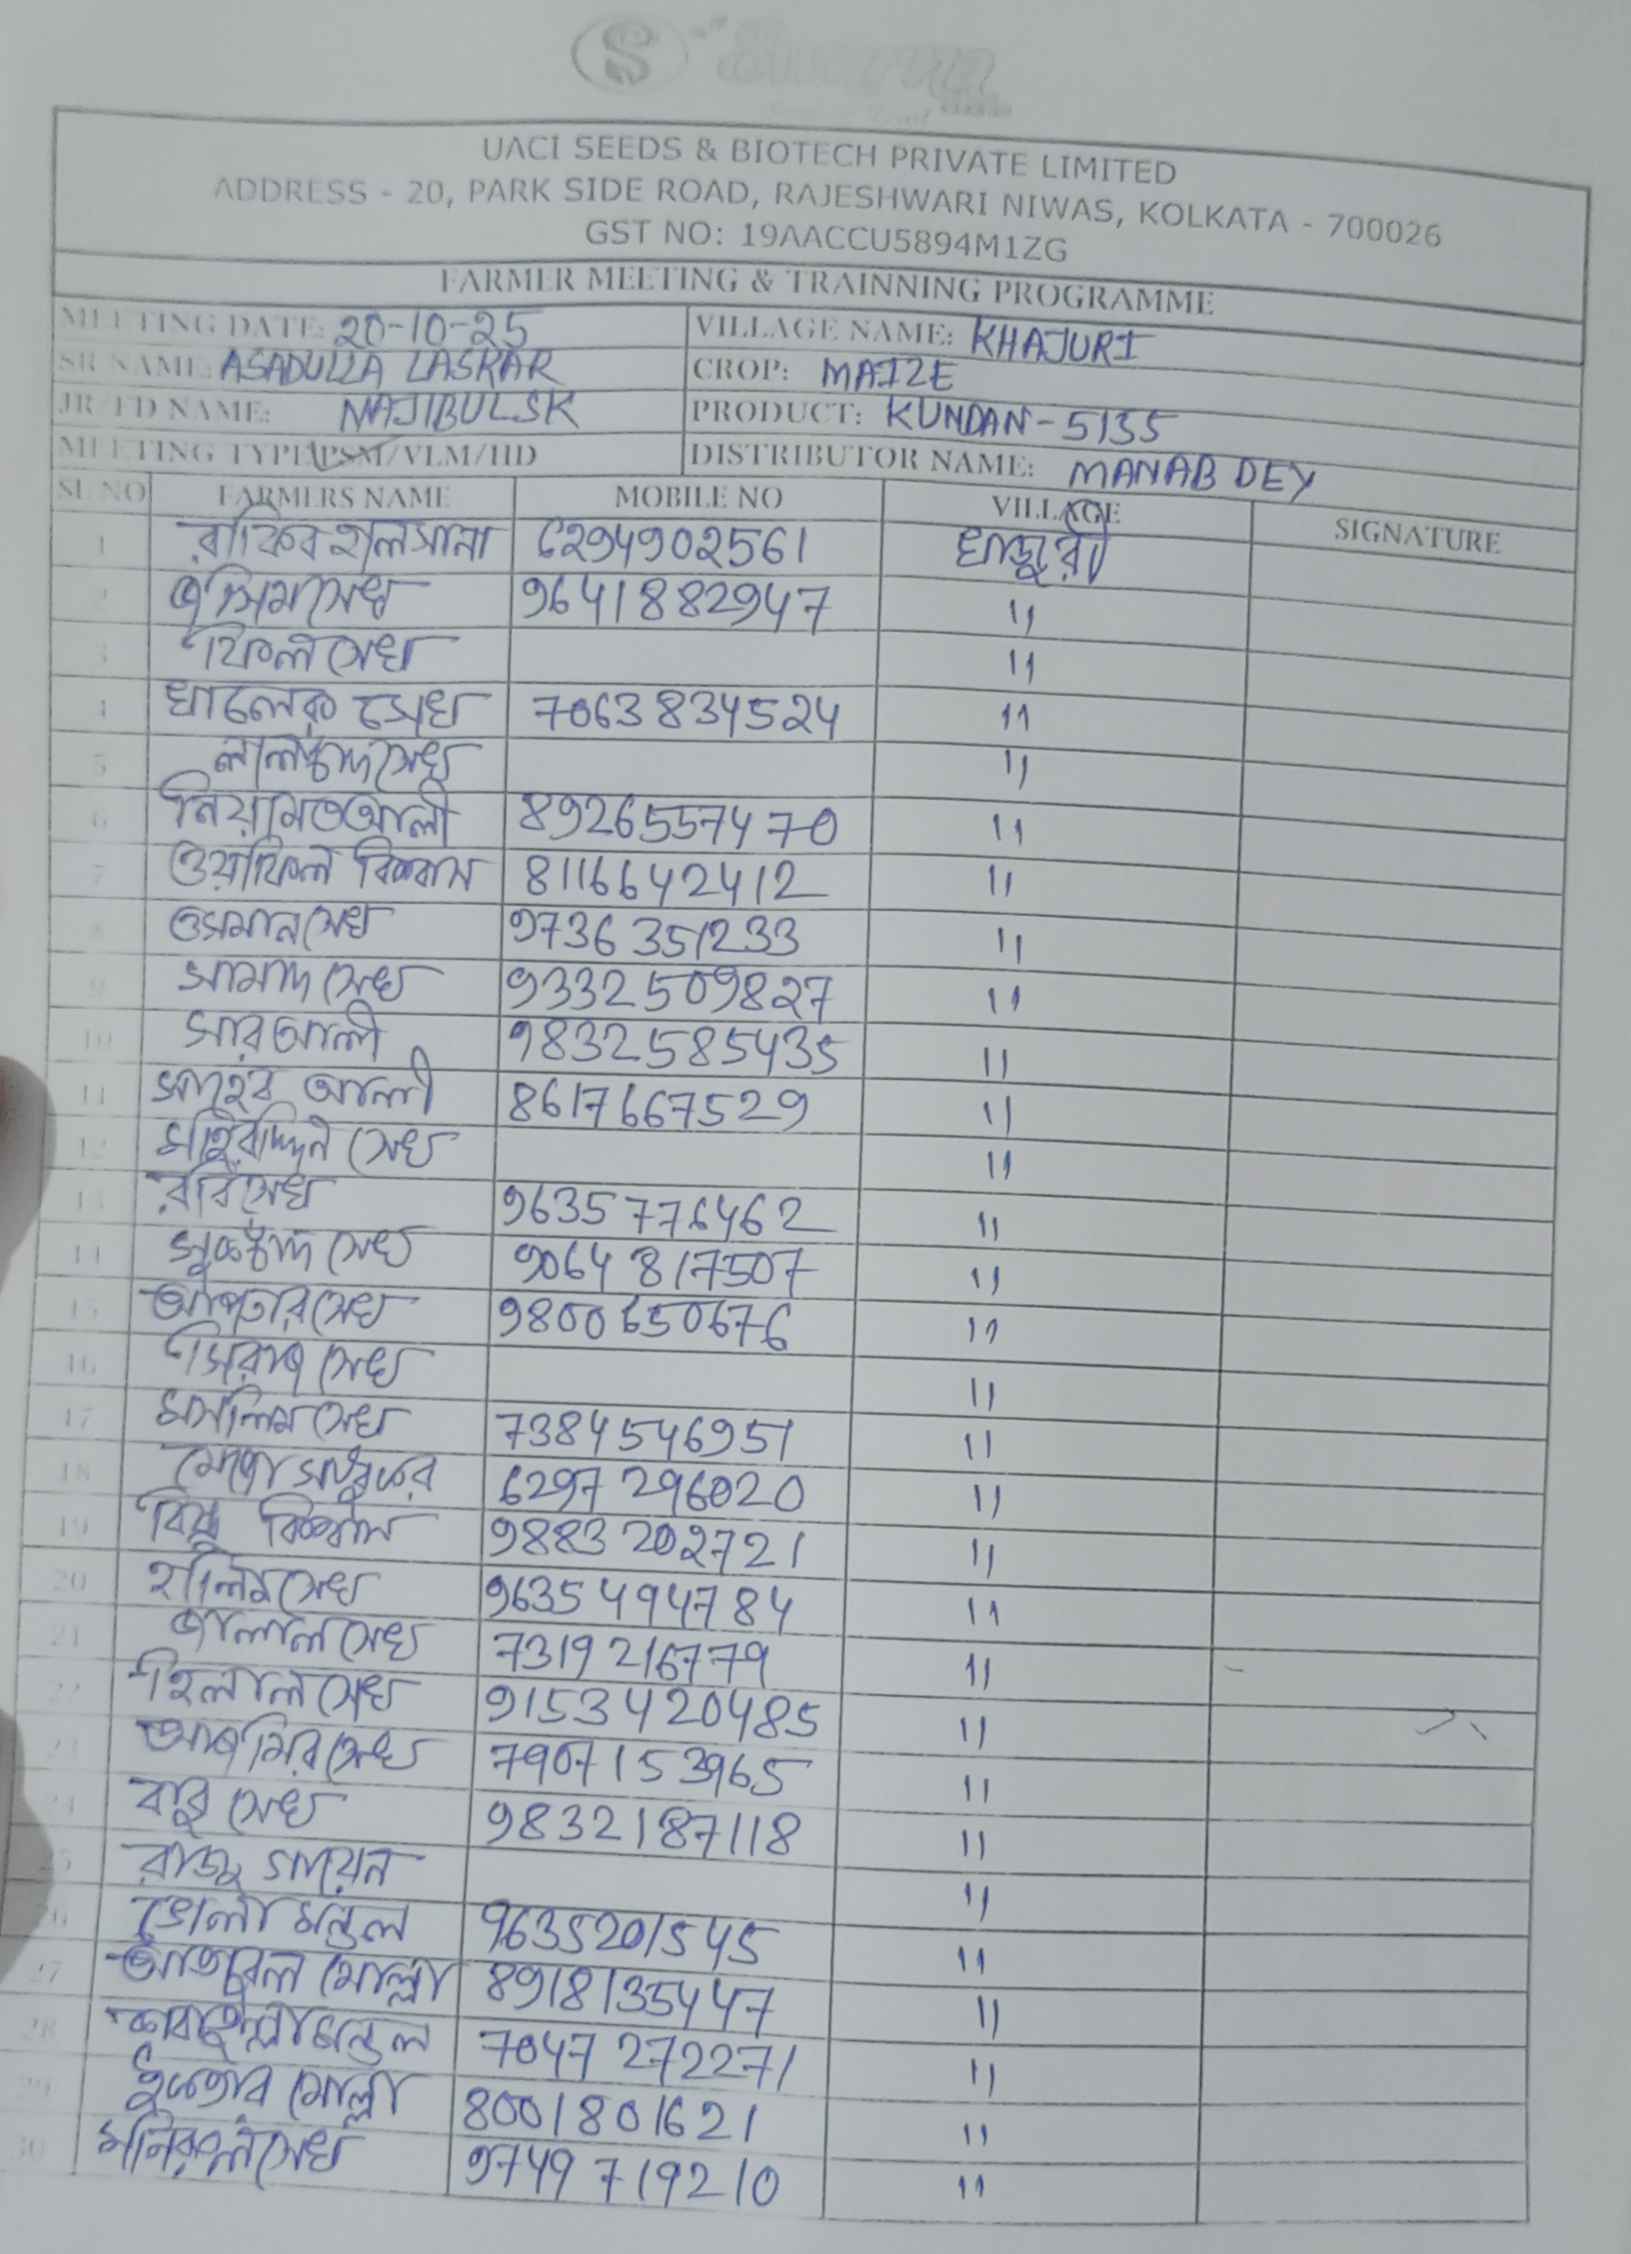 S
UACI SEEDS & BIOTECH PRIVATE LIMITED
ADDRESS - 20, PARK SIDE ROAD, RAJESHWARI NIWAS, KOLKATA - 700026
GST NO: 19AACCU5894M1ZG
FARMER MEETING & TRAINNING PROGRAMME
MEETING DATE: 20-10-25 VILLAGE NAME: KHAJURI
SR NAME: ASADULLA LASKAR CROP: MAIZE
JR/FD NAME: NAJIBUL SK PRODUCT: KUNDAN-5135
MEETING TYPE: PSM/VLM/HD DISTRIBUTOR NAME: MANAB DEY
SL NO FARMERS NAME MOBILE NO VILLAGE SIGNATURE
1 রাকিব হালসানা 6294902561 খাজুরী
2 জসিম সেখ 9641882947 11
3 ফিল সেখ 11
4 খালেক সেখ 7063834524 11
5 লালচাঁদ সেখ 11
6 নিয়ামত আলী 8926557470 11
7 ওয়াফিল বিশ্বাস 8116642412 11
8 ওসমান সেখ 9736351233 11
9 সামাদ সেখ 9332509827 11
10 সার আলী 9832585435 11
11 সাহেব আলী 8617667529 11
12 সেখ 11
13 রবি সেখ 9635776462 11
14 সেখ 9064817507 11
15 সেখ 9800650676 11
16 সিরাজ সেখ 11
17 মসলিম সেখ 7384546951 11
18 6297296020 11
19 বিশ্বাস 9883202721 11
20 হালিম সেখ 9635494784 11
21 জালাল সেখ 7319216779 11
22 হিলাল সেখ 9153420485 11
23 আজমির সেখ 7907153965 11
24 বাবু সেখ 9832187118 11
25 রাজু গায়েন 11
26 ভোলা মন্ডল 9635201545 11
27 মোল্লা 8918135447 11
28 মন্ডল 7047272271 11
29 মোল্লা 8001801621 11
30 মনিরুল সেখ 9749719210 11